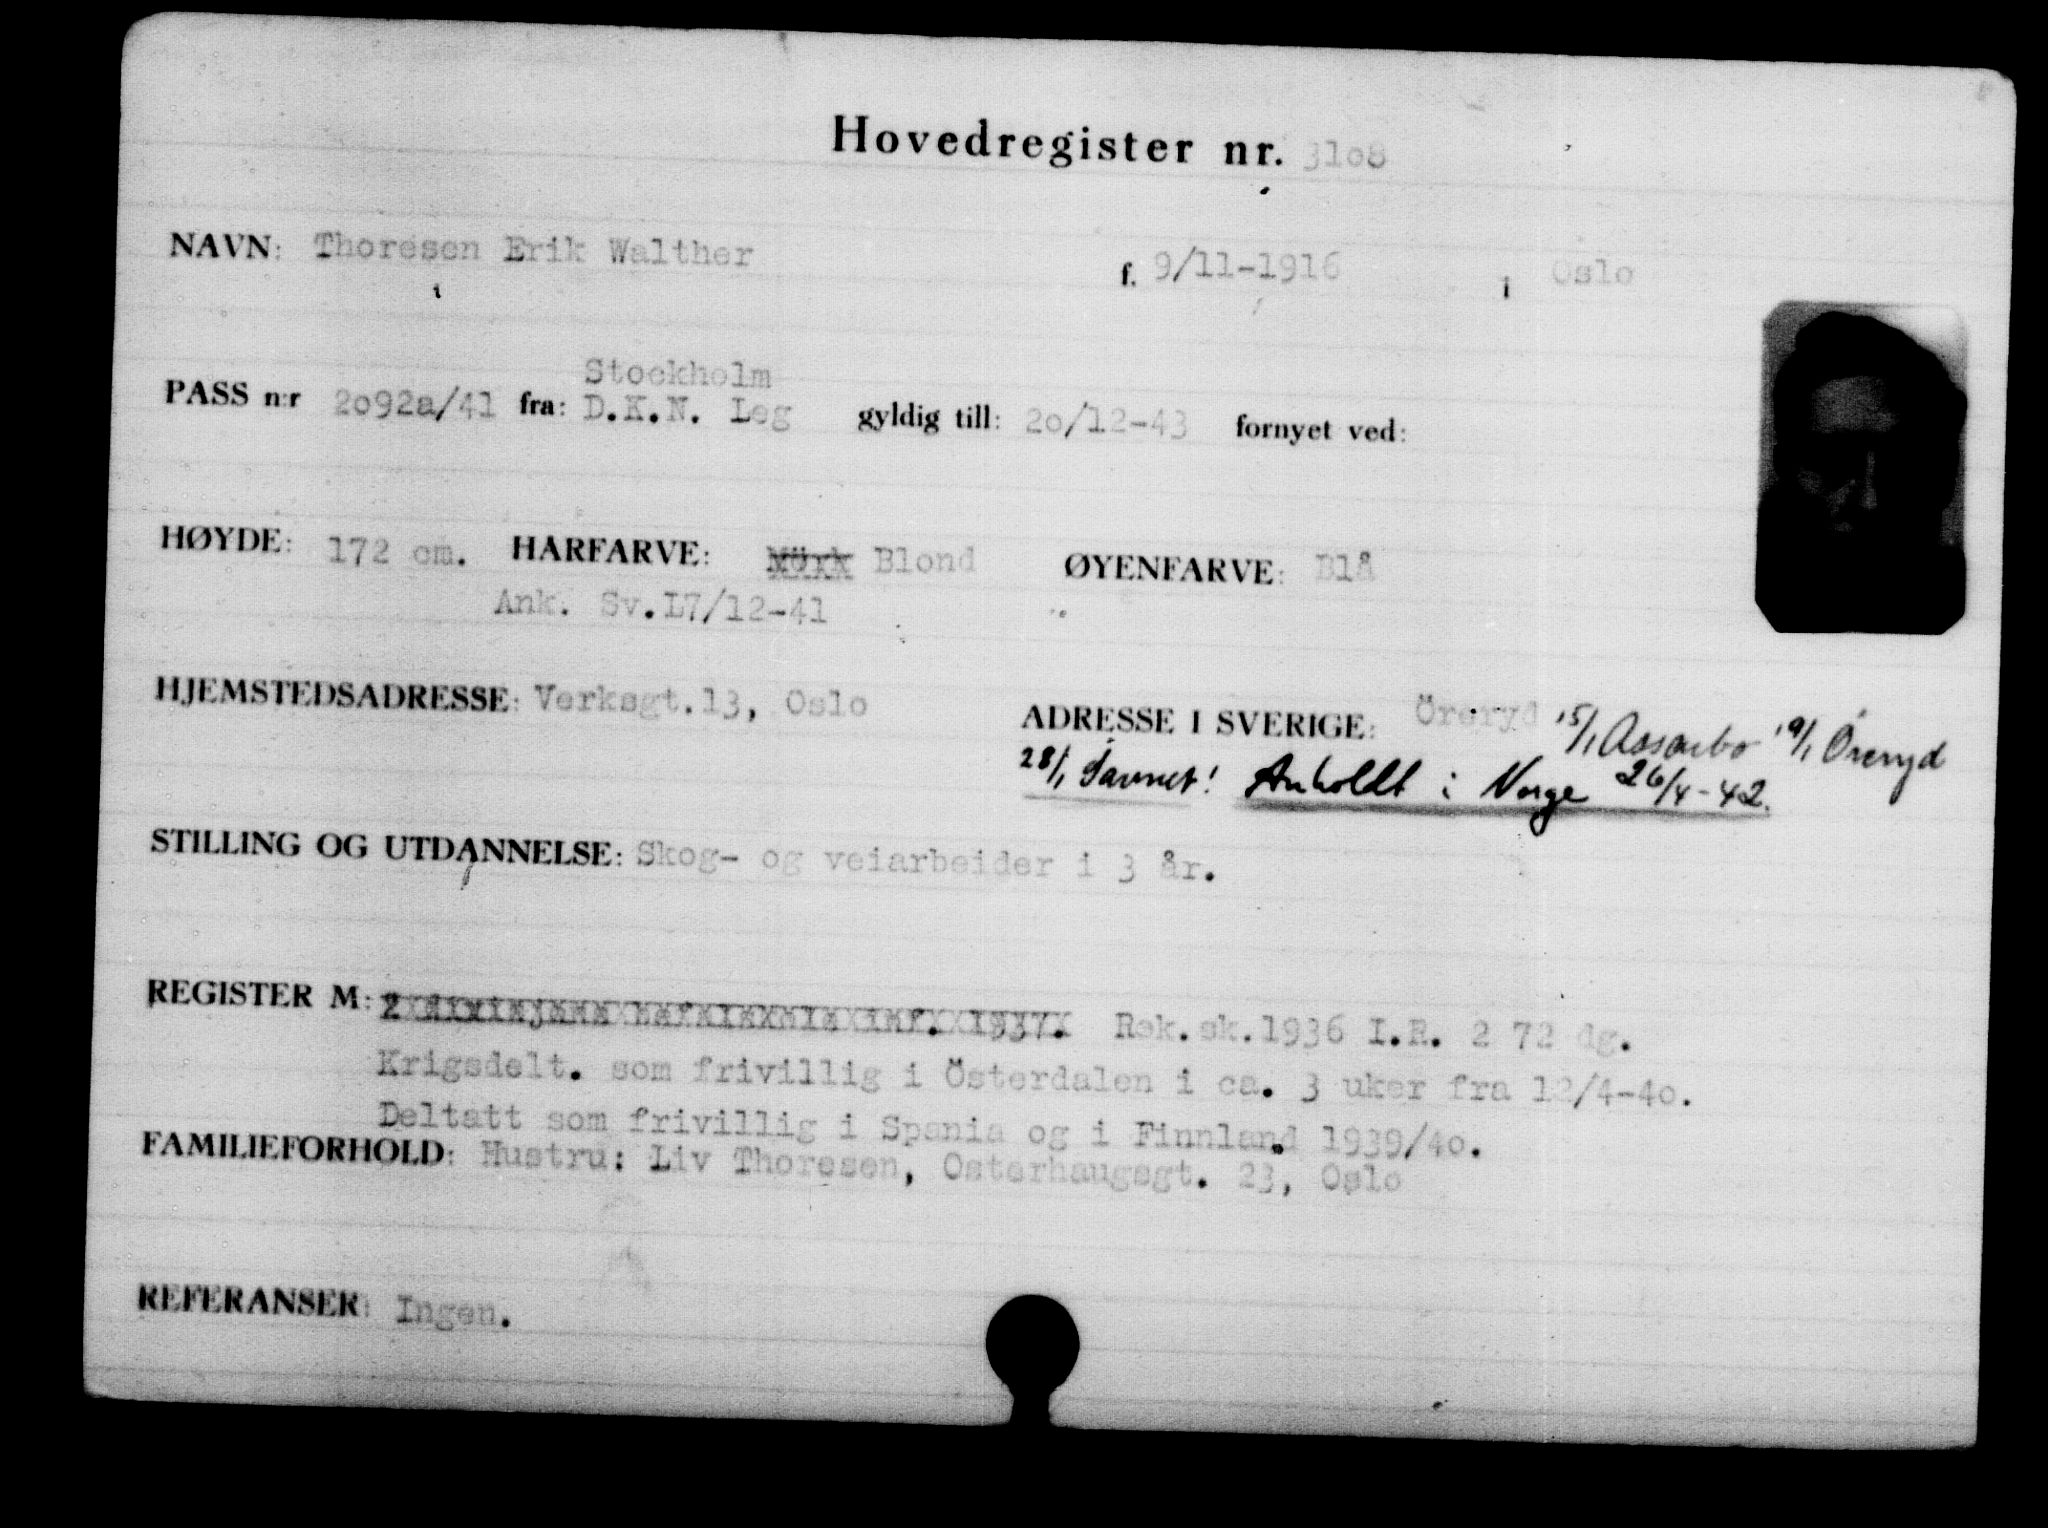 Hovedregister nr. 3108
NAVN: Thoresen Erik Walther f. 9/11-1916 i Oslo
Stockholm
PASS n:r 2o92a/41 fra: D.K.N. Leg gyldig till: 2o/12-43 fornyet ved:
HØYDE: 172 cm. HÅRFARVE: Mörk Blond ØYENFARVE: Blå
Ank. Sv.17/12-41
HJEMSTEDSADRESSE: Verksgt.13, Oslo ADRESSE I SVERIGE: Öreryd 15/1 Assarbo 19/1 Öreryd
28/1 Savnet! Anholdt i Norge 26/4-42.
STILLING OG UTDANNELSE: Skog- og veiarbeider i 3 år.
REGISTER M: 1937. Rek.sk.1936 I.R. 2 72 dg.
Krigsdelt. som frivillig i Österdalen i ca. 3 uker fra 12/4-4o.
Deltatt som frivillig i Spania og i Finnland 1939/4o.
FAMILIEFORHOLD: Hustru: Liv Thoresen, Osterhaugsgt. 23, Oslo
REFERANSER: Ingen.